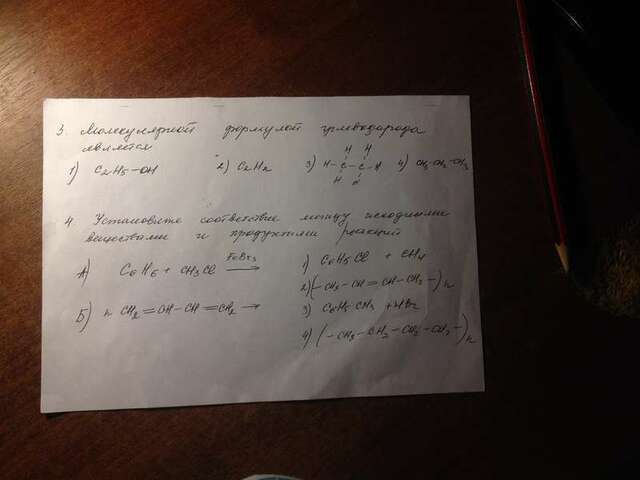 3. Молекулярной формулой углеводорода
является
1) C2H5-OH 2) C2H2 3) H-C-C-H 4) CH3-CH2-CH3
H H
H H
4. Установите соответствие между исходными
веществами и продуктами реакций
А) C6H6 + CH3Cl FeBr3 → 1) C6H5Cl + CH4
2) (-CH2-CH=CH-CH2-)n
Б) n CH2=CH-CH=CH2 → 3) C6H5CH3 + HBr
4) (-CH2-CH2-CH2-CH2-)n